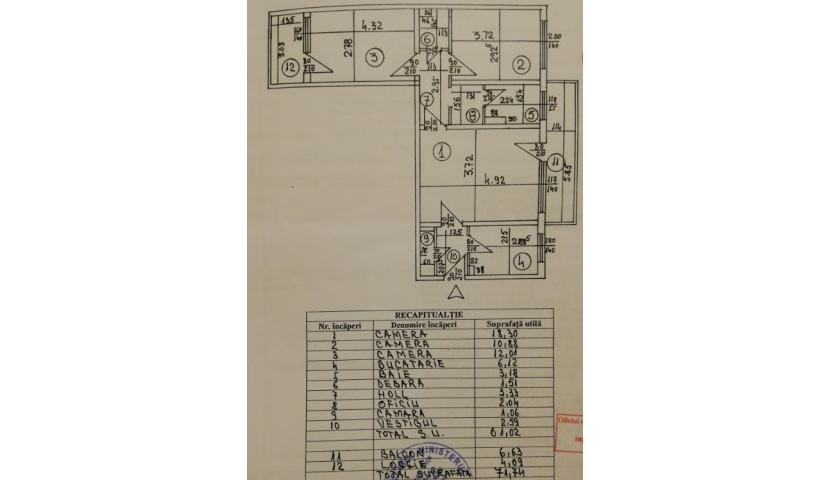 135
4.32
46
113
3.72
200
140
3.03
2.78
6
292⁵
12
3
2
80
210
90
210
113
90
210
2.95
7
156
131
8
224
154
5
118
55
88
90
114
1
3.72
4.92
80
210
11
117
140
5.85
9
125
215
285
120
140
10
4
60
22
88
90
210
RECAPITUALŢIE
Nr. încăperi Denumire încăperi Suprafață utilă
1 CAMERA 18,30
2 CAMERA 10,88
3 CAMERA 12,01
4 BUCATARIE 6,12
5 BAIE 3,18
6 DEBARA 1,51
7 HOLL 3,33
8 OFICIU 2,04
9 CAMARA 1,06
10 VESTIBUL 2.59
TOTAL S.U. 61,02
11 BALCON 6,63
12 LOGGIE 4,09
TOTAL SUPRAFATA 71,74
MINISTERUL
Oficiul